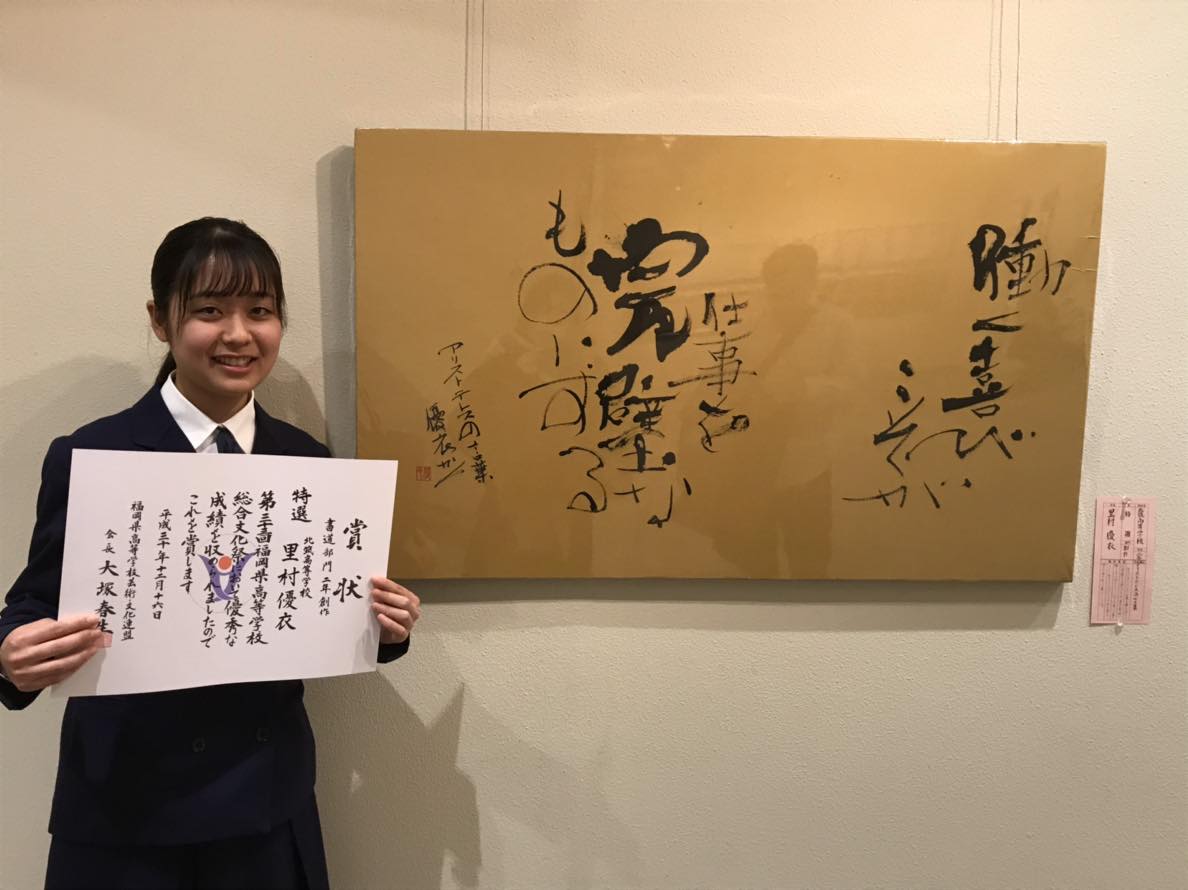 働く喜び
こそが
仕事を
完璧な
ものにする
アリストテレスの言葉
優衣かく
賞状
書道部門 二年創作
特選 北筑高等学校
里村優衣
第三十三回福岡県高等学校
総合文化祭において優秀な
成績を収められましたので
これを賞します
平成三十年十二月十六日
福岡県高等学校芸術・文化連盟
会長 大塚春生
特選
里村 優衣